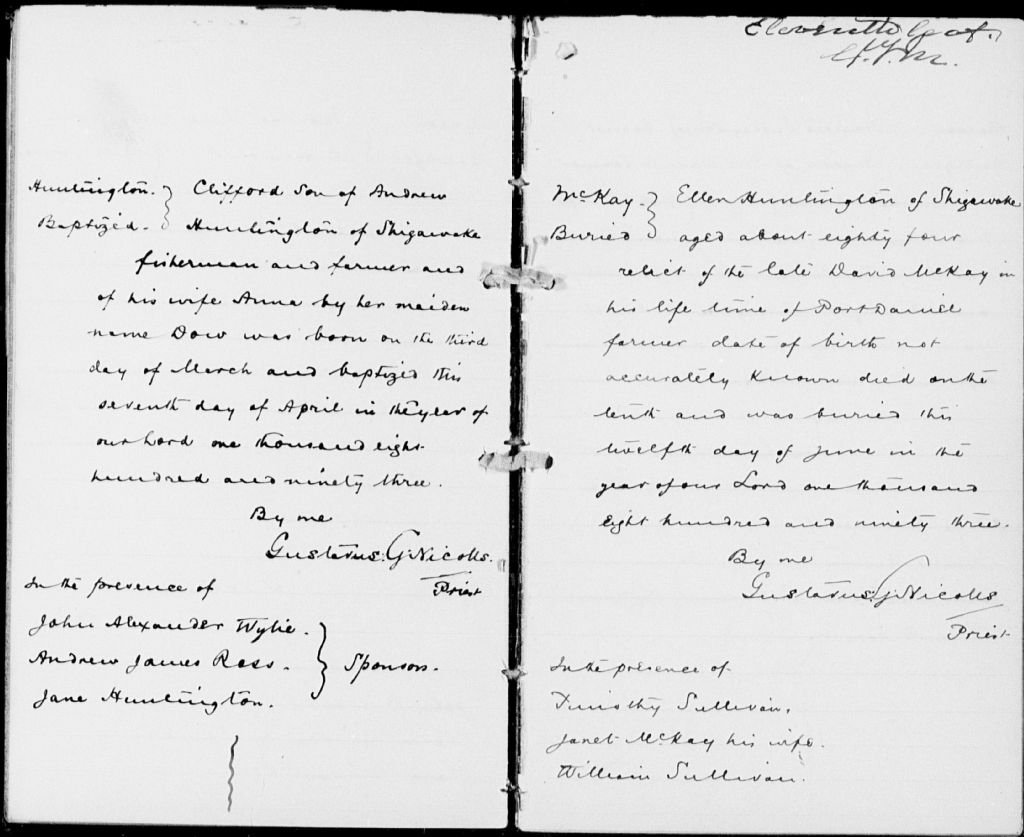 Huntington. } Clifford Son of Andrew
Baptized. } Huntington of Shigawake
fisherman and farmer and
of his wife Anna by her maiden
name Dow was born on the third
day of March and baptized this
seventh day of April in the year of
our Lord one thousand eight
hundred and ninety three.
By me
Gustavus. G. Nicolls.
Priest
In the presence of
John Alexander Wylie.
Andrew James Ross. } Sponsors.
Jane Huntington.
Eleventh
McKay. } Ellen Huntington of Shigawake
Buried } aged about eighty four
relict of the late David McKay in
his life time of Port Daniel
farmer date of birth not
accurately known died on the
tenth and was buried this
twelfth day of June in the
year of our Lord one thousand
eight hundred and ninety three.
By me
Gustavus. G. Nicolls
Priest
In the presence of
Timothy Sullivan.
Janet McKay his wife.
William Sullivan.